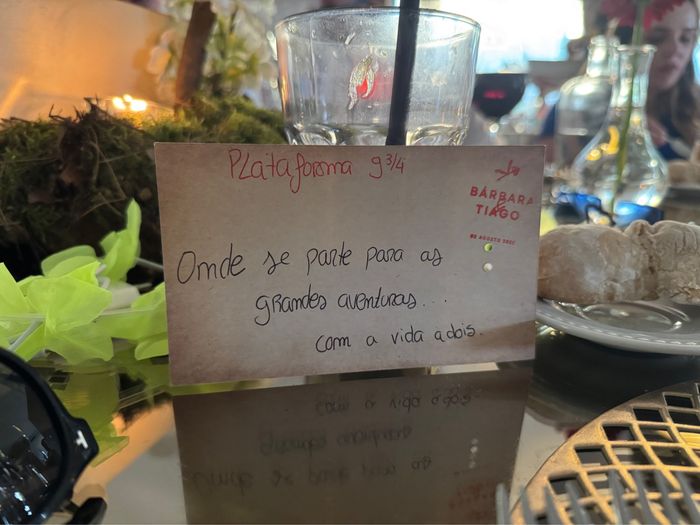 Plataforma 9 3/4
BÁRBARA
& TIAGO
Onde se parte para as
grandes aventuras...
com a vida a dois.